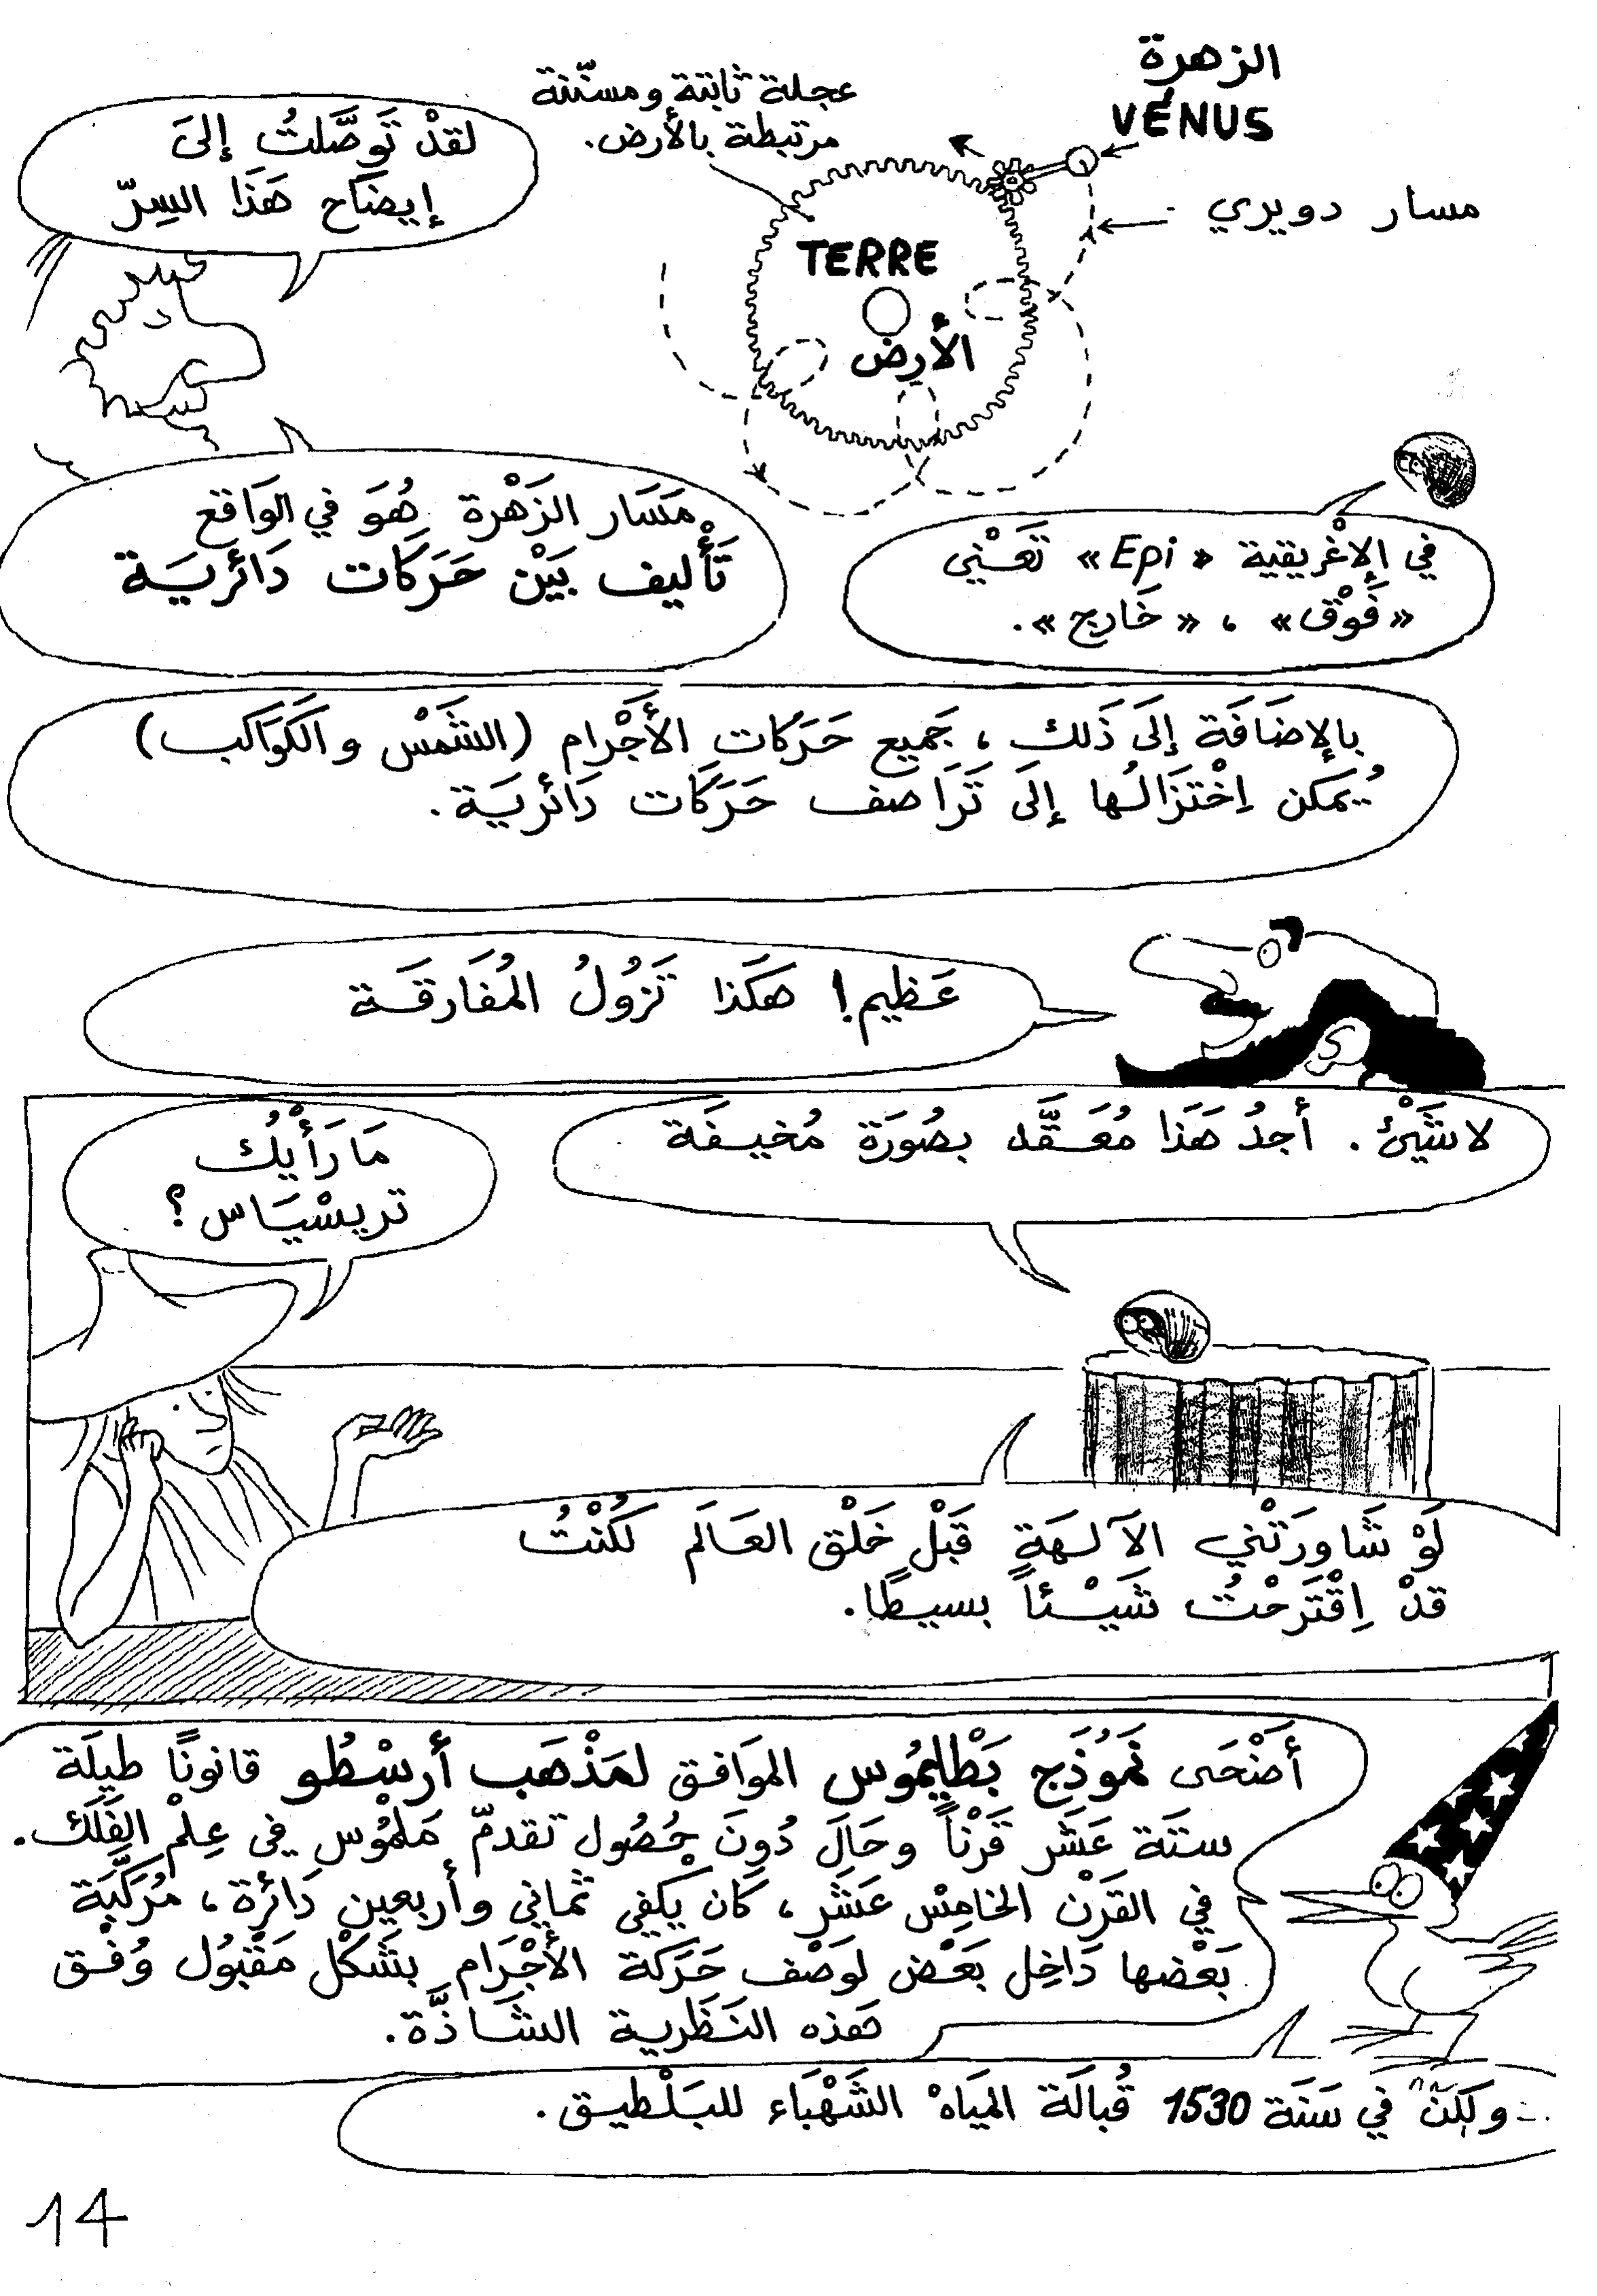 الزهرة
VÉNUS
عجلة ثابتة ومسنّنة
مرتبطة بالأرض.
مسار دويري
TERRE
الأرض
لقدْ تَوصَّلتُ إلىَ
إيضَاح هَذَا السِرّ
مَسَار الزَهْرة هُوَ في الوَاقع
تَأْليف بَيْن حَرَكَات دَائريَة
في الإغْريقية «Epi» تَعْني
«فَوْق» ، «خَارج».
بالإضَافَة إلَى ذَلك ، جَميع حَرَكات الأَجْرام (الشَمْس و الكَوَاكب)
يُمكن اِخْتزَالُها إلَى تَرَاصف حَرَكَات دَائريَة.
عَظيم! هكَذا تَزُولُ المُفارقَة
لاشَيْئ . أجدُ هَذَا مُعَقَّد بصُورَة مُخيفَة
مَا رَأْيُك
تريسْيَاس ؟
لَوْ شَاورَتْني الآلهَة قَبْل خَلْق العَالَم لَكُنْتُ
قدْ اِقْتَرحْتُ شَيْئاً بسيطًا.
أضْحَى نَمُوذَج بَطْليمُوس الموَافق لمَذْهَب أرسْطُو قانونًا طيلَة
ستَة عَشَر قَرْناً وحَالَ دُونَ حُصُول تقدمّ مَلمُوس في عِلْم الفَلَك.
في القَرْن الخامِسْ عَشَر ، كَان يَكْفي ثماني وأربعين دَائرة ، مُركَّبَة
بَعْضها دَاخِل بَعْض لوَصْف حَرَكة الأَجْرَام بشَكْل مَقْبُول وُفْق
هَذه النَظَرية الشَاذَّة.
ولَكنَ في سَنَة 1530 قُبالَة المَياهْ الشَهْبَاء للبَلْطيق.
14